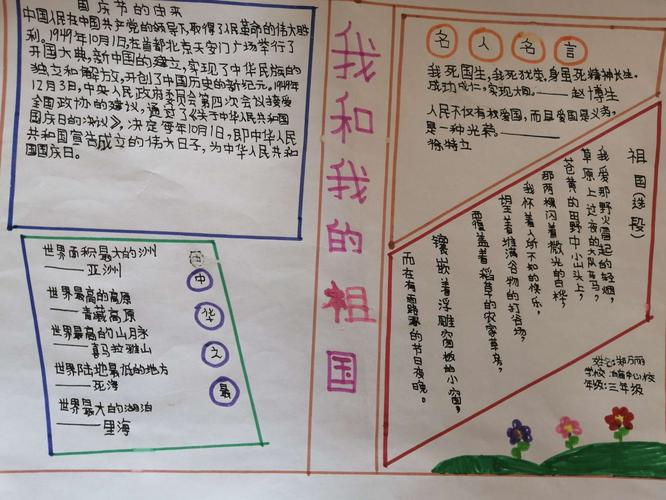 国庆节的由来
中国人民在中国共产党的领导下,取得了人民革命的伟大胜
利。1949年10月1日,在首都北京天安门广场举行了
开国大典,新中国的建立,实现了中华民族的
独立和解方攵,开创了中国历史的新纪元。1949年
12月3日,中央人民政府委员会第四次会议接受
全国政协的建议,通过了《关于中华人民共和国
国庆日的决议》,决定每年10月1日,即中华人民
共和国宣告成立的伟大日子,为中华人民共和
国国庆日。
我和我的祖国
名人名言
我死国生,我死犹荣,身虽死精神长生,
成功成仁,实现大同。——赵博生
人民不仅有权爱国,而且爱国是义务,
是一种光荣。——
徐特立
祖国(选段)
我爱那野火冒起的轻烟,
草原上过夜的大队车马,
苍黄的田野中小山头上,
那两棵闪着微光的白桦,
我怀着人所不知的快乐,
望着堆满谷物的打谷场,
覆盖着稻草的农家草房,
镶嵌着浮雕窗板的小窗,
而在有雨露的节日夜晚。
世界面积最大的洲
——亚洲
世界最高的高原
——青藏高原
世界最高的山月永
——喜马拉雅山
世界陆地最低的地方
——死海
世界最大的湖泊
——里海
中
华
之
最
年级:三年级